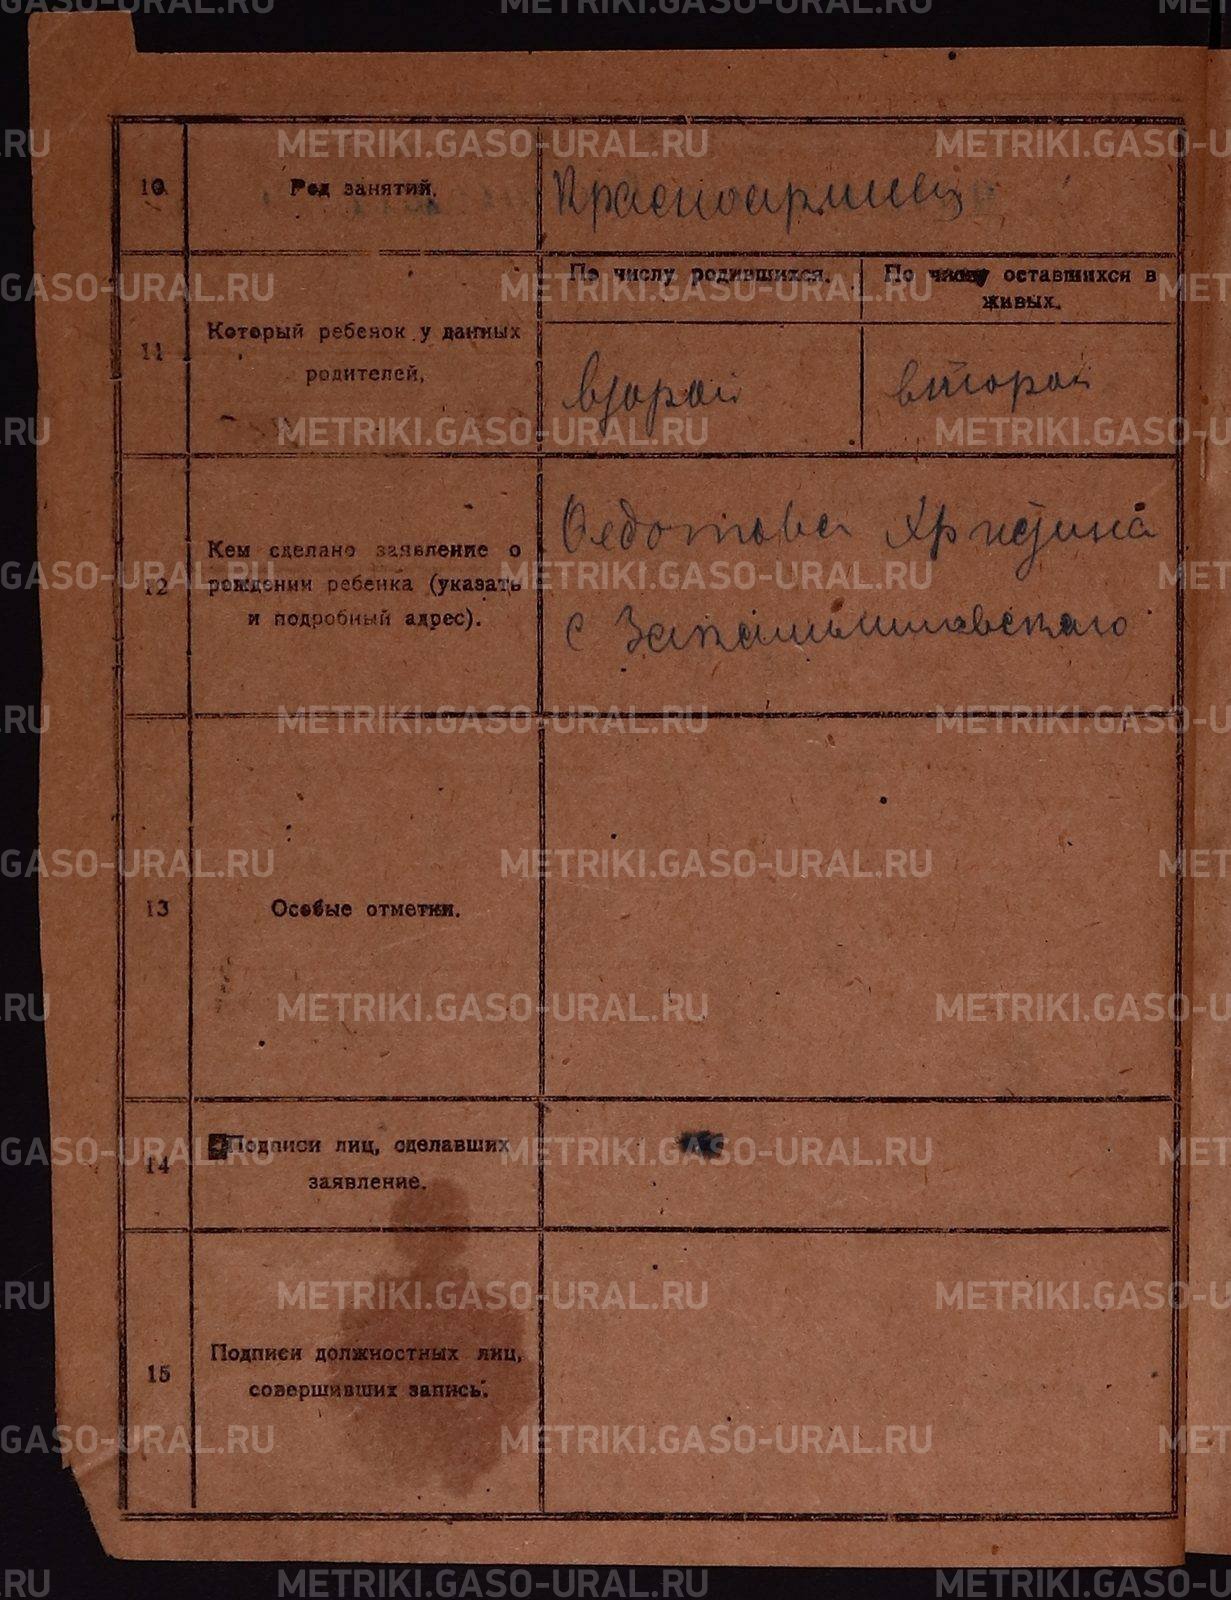 10
Род занятий.
Красноармиец
11
Который ребенок у данных
родителей.
По числу родившихся.
По числу оставшихся в
живых.
второй
второй
12
Кем сделано заявление о
рождении ребенка (указать
и подробный адрес).
Федотова Христина
с
13
Особые отметки.
14
Подписи лиц, сделавших
заявление.
15
Подписи должностных лиц,
совершивших запись.
METRIKI.GASO-URAL.RU